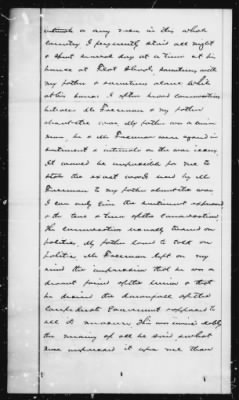 intimate as any man in his whole
Country I frequently staid all night
& spent several days at a time at his
house at Port Gibson, sometimes with
my father & sometimes alone While
at his house I often heard conversation
between Mr Freeman & my father
about the war. My father was a union
man, he & Mr Freeman were agreed in
sentiment & intimate on the war issue.
It would be impossible for me to
state the exact words used by Mr
Freeman to my father about the war
I can only give the sentiment expressed
& the tone & turn of the conversation.
The conversation usually turned on
politics. My father loved to talk on
politics. Mr Freeman left on my
mind the impression that he was a
decided friend of the union & that
he desired the downfall of the
Confederate Government & opposed to
all its measures. This was unmistakably
the meaning of all he said & what
was impressed it upon me than